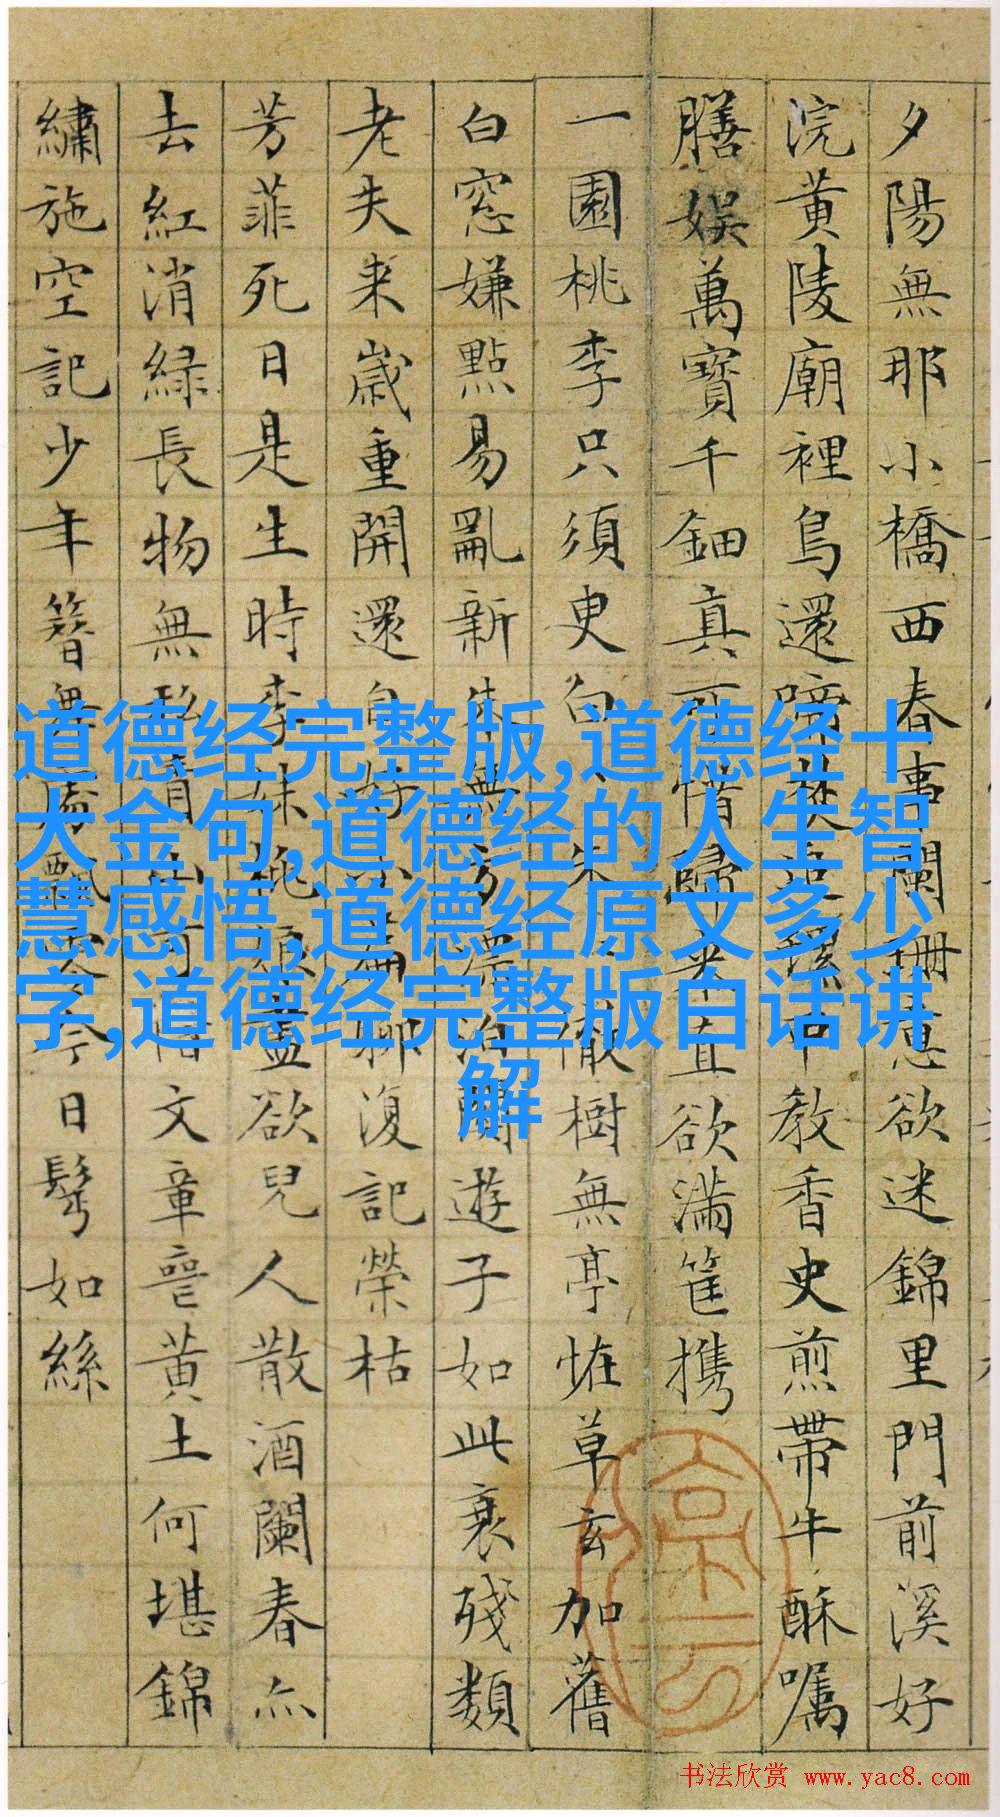 夕陽無那小橋西春事闌珊意欲迷錦里門前溪好
浣黄陵廟裡鳥還啼
教香史煎帶牛酥囑
膳娱萬寶千鈿真可惜歸来直欲滿筐携
一園桃李只須臾白
徹樹無亭恠草玄加舊
白窓嫌點易亂新朱無
遊子如此衰殘類
老夫来歲重開還自好
復記榮枯
芳菲死日是生時李妹桃娘盡欲兒人散酒闌春亦
去紅消緑長物無私
文章罄黄土何堪錦
繡施空記少年簪
今日鬂如絲
道德经完整版,道德经十
大金句,道德经的人生智
慧感悟,道德经原文多少
字,道德经完整版白话讲
解
书法欣赏 www.yac8.com